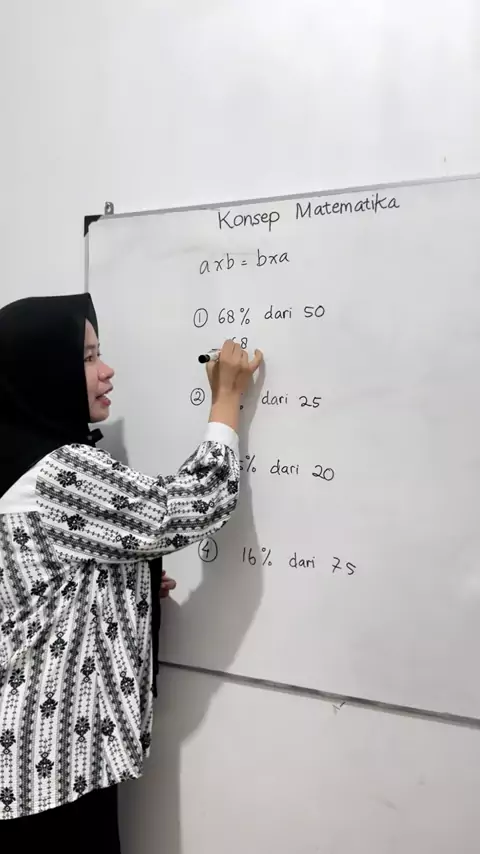 Konsep Matematika
a x b = b x a
① 68% dari 50
68
② dari 25
5% dari 20
④ 16% dari 75